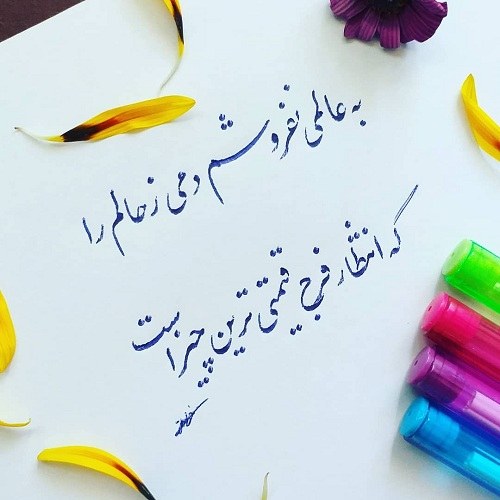 به عالمی نفروشم دمی ز حالم را
که انتظار فرج قیمتی ترین چیز است